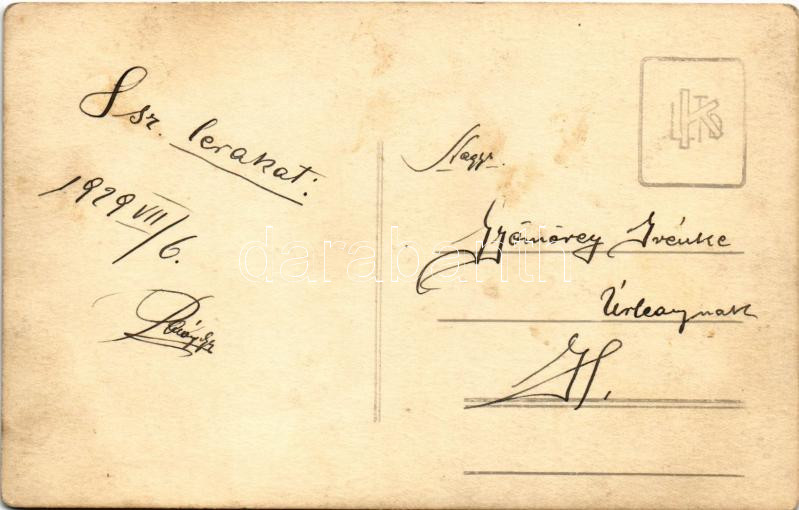 8 sz. lerakat:
1929 VII/6.
Nagys.
Gyömörey Irénke
Úrleánynak
H.
darabanth